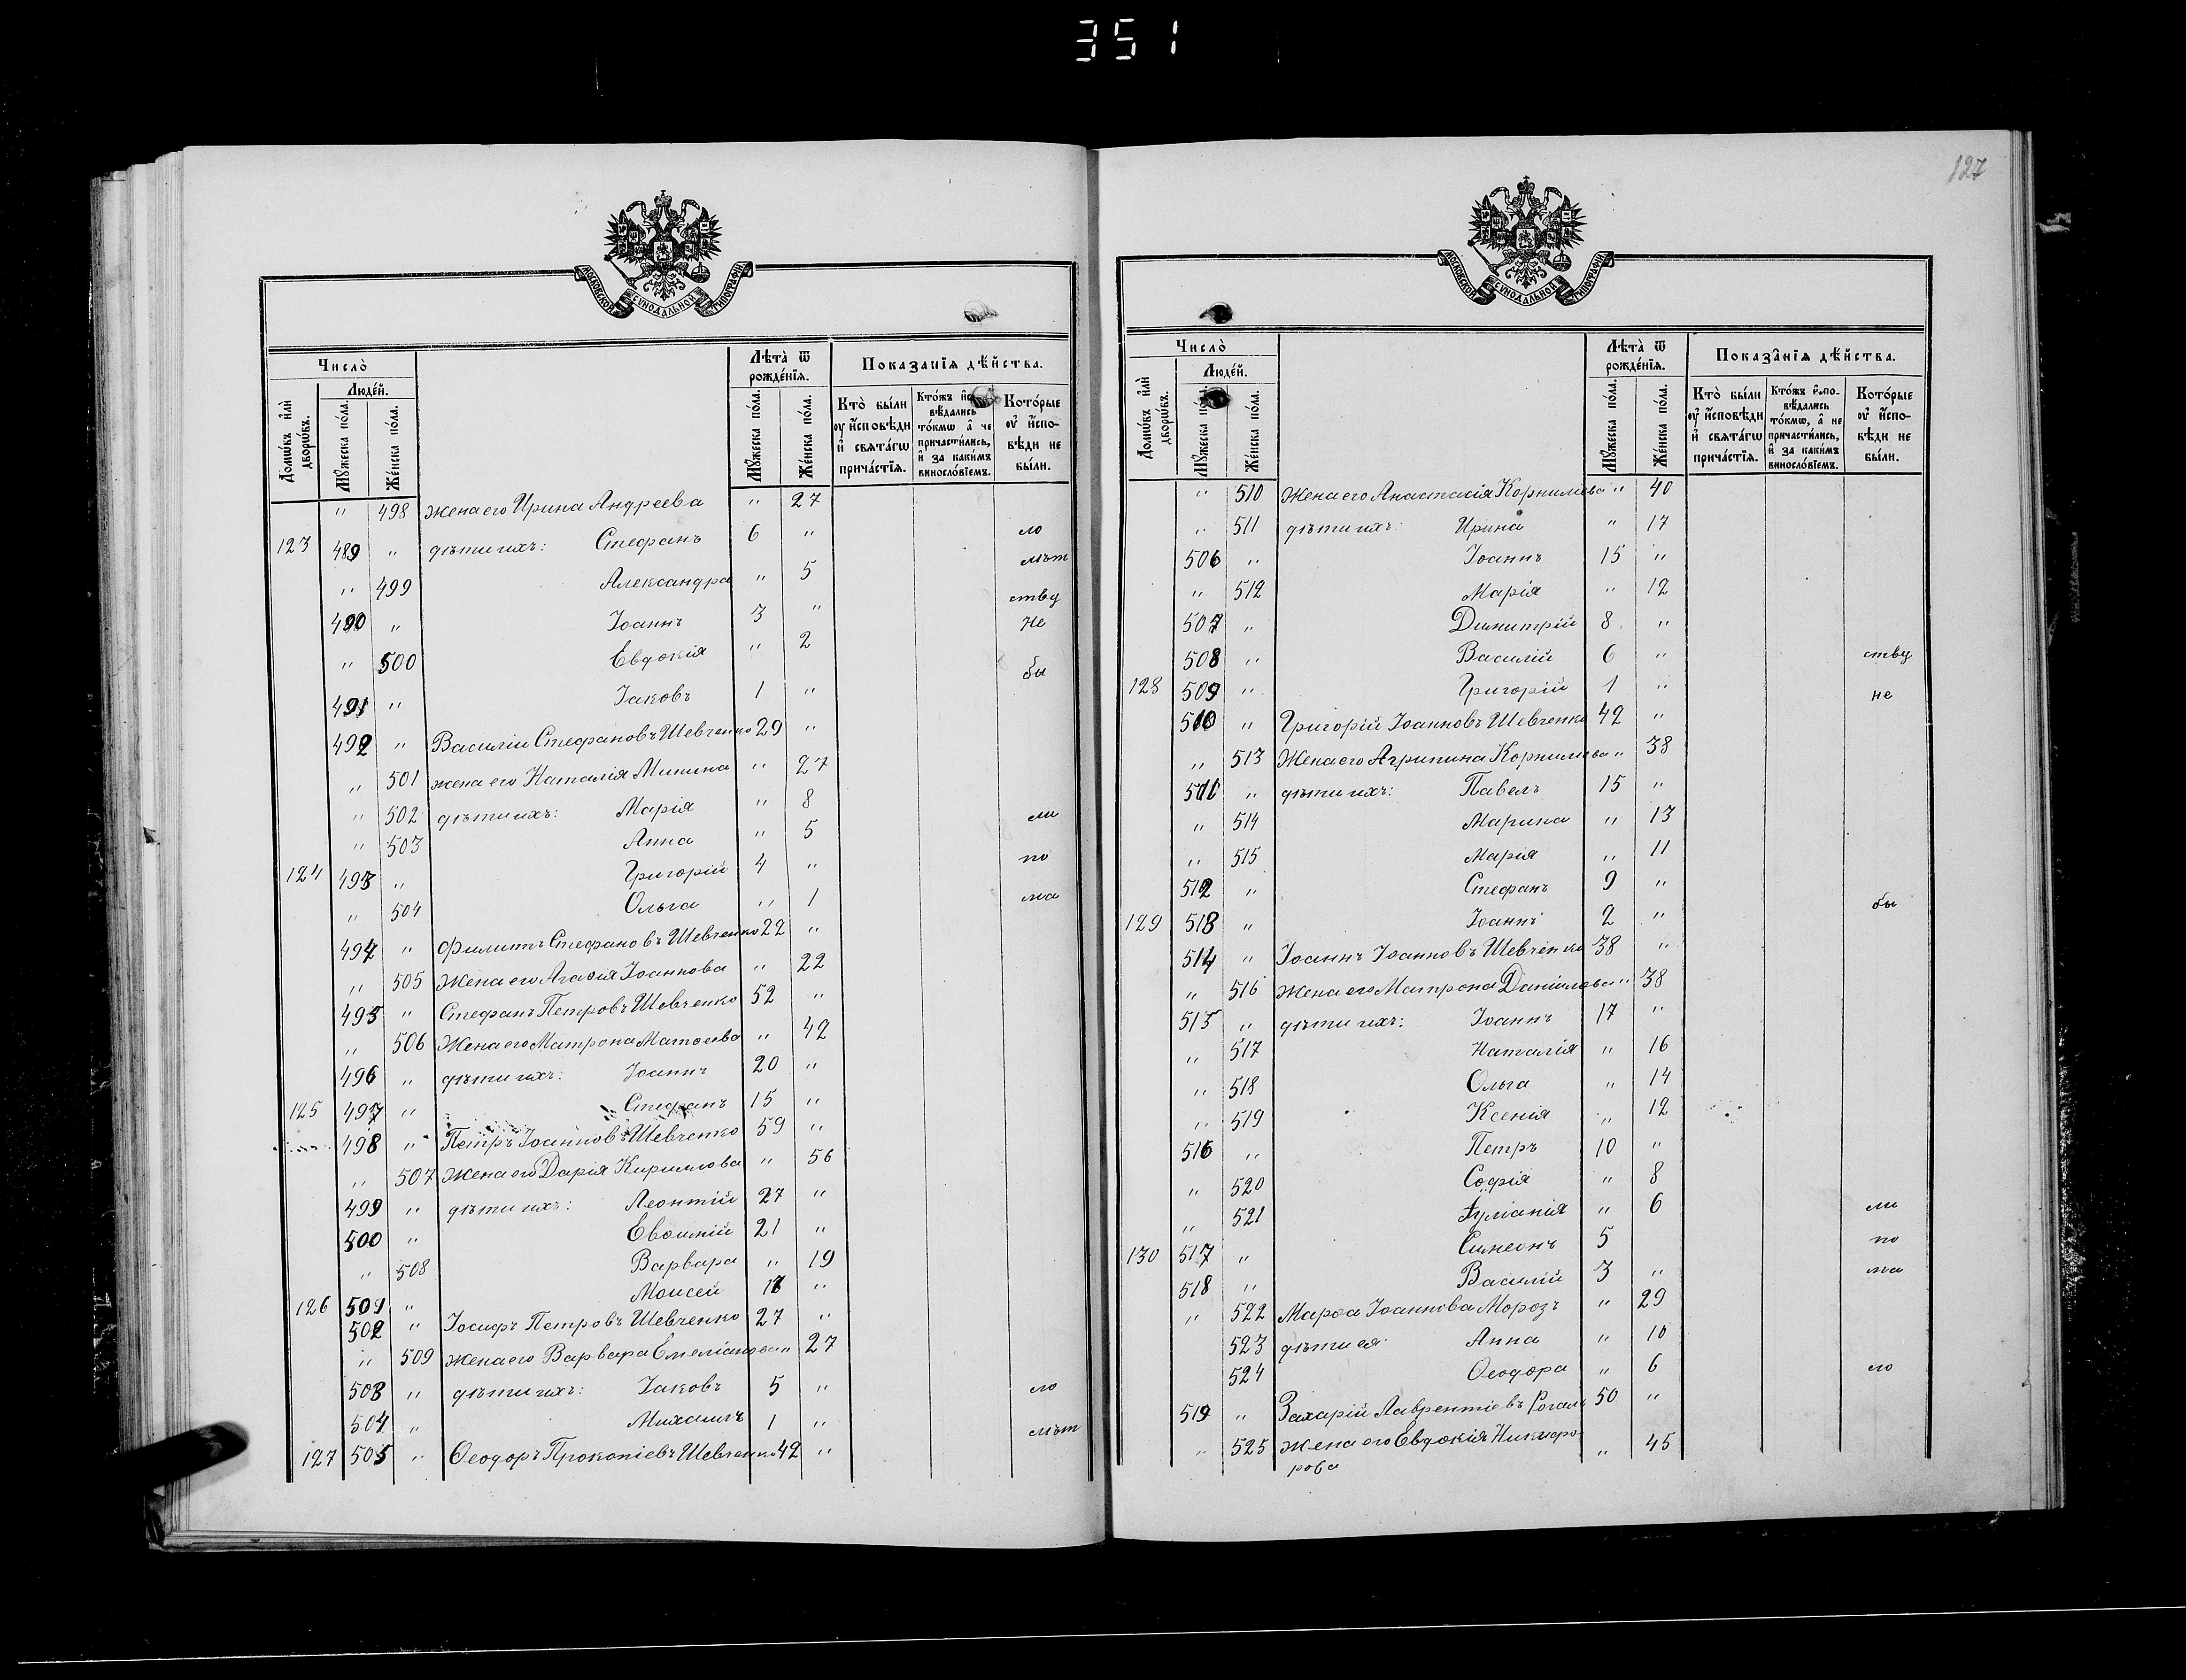 351
127
МОСКОВСКОЙ СУНОДАЛЬНОЙ ТИПОГРАФІИ
Число̀
Люде́й.
Домѡ́въ и҆лѝ дворѡ́въ.
Мꙋ́жеска по́ла.
Же́нска по́ла.
Лѣта̀ ѿ рожде́нїѧ.
Мꙋ́жеска по́ла.
Же́нска по́ла.
Показа́нїѧ дѣ́йства.
Кто̀ бы́ли ᲂу҆ и҆́сповѣди и҆ свѧта́гѡ прича́стїѧ.
Кто́жъ и҆сповѣ́дались то́кмѡ, а҆ не причасти́лись, и҆ за каки́мъ виносло́вїемъ.
Кото́рые ᲂу҆ и҆́сповѣди не бы́ли.
" 498 жена его Ирина Андреева " 27
123 489 " дѣти ихъ: Стефанъ 6 " ло
" 499 Александра " 5 лѣт
490 " Іоаннъ 3 " ству
" 500 Евдокія " 2 не
491 " Іаковъ 1 " бы
492 " Василій Стефановъ Шевченко 29 "
" 501 жена его Наталія Минина " 27
" 502 дѣти ихъ: Марія " 8
" 503 Анна " 5 ли
124 493 " Григорій 4 " по
" 504 Ольга " 1 ма
494 " Филиппъ Стефановъ Шевченко 22 "
" 505 Жена его Агафія Іоаннова " 22
495 " Стефанъ Петровъ Шевченко 52 "
" 506 Жена его Матрона Матѳеева " 42
496 " дѣти ихъ: Іоаннъ 20 "
125 497 " Стефанъ 15 "
498 " Петръ Іоанновъ Шевченко 59 "
" 507 Жена его Дарія Кириллова " 56
499 " дѣти ихъ: Леонтій 27 "
500 " Евѳимій 21 "
" 508 Варвара " 19
126 501 " Моисей 17 "
502 " Іосифъ Петровъ Шевченко 27 "
" 509 жена его Варвара Емеліанова " 27
503 " дѣти ихъ: Іаковъ 5 " ло
504 " Михаилъ 1 " лѣт
127 505 " Ѳеодоръ Прокопіевъ Шевченко 42 "
МОСКОВСКОЙ СУНОДАЛЬНОЙ ТИПОГРАФІИ
Число̀
Люде́й.
Домѡ́въ и҆лѝ дворѡ́въ.
Мꙋ́жеска по́ла.
Же́нска по́ла.
Лѣта̀ ѿ рожде́нїѧ.
Мꙋ́жеска по́ла.
Же́нска по́ла.
Показа́нїѧ дѣ́йства.
Кто̀ бы́ли ᲂу҆ и҆́сповѣди и҆ свѧта́гѡ прича́стїѧ.
Кто́жъ и҆сповѣ́дались то́кмѡ, а҆ не причасти́лись, и҆ за каки́мъ виносло́вїемъ.
Кото́рые ᲂу҆ и҆́сповѣди не бы́ли.
" 510 Жена его Анастасія Корниліева " 40
" 511 дѣти ихъ: Ирина " 17
506 " Іоаннъ 15 "
" 512 Марія " 12
507 " Димитрій 8 "
508 " Василій 6 " ству
128 509 " Григорій 1 " не
510 " Григорій Іоанновъ Шевченко 42 "
" 513 Жена его Агрипина Корниліева " 38
511 " дѣти ихъ: Павелъ 15 "
" 514 Марина " 13
" 515 Марія " 11
512 " Стефанъ 9 "
129 513 " Іоаннъ 2 " бы
514 " Іоаннъ Іоанновъ Шевченко 38 "
" 516 Жена его Матрона Даніилова " 38
515 " дѣти ихъ: Іоаннъ 17 "
" 517 Наталія " 16
" 518 Ольга " 14
" 519 Ксенія " 12
516 " Петръ 10 "
" 520 Софія " 8
" 521 Іуліанія " 6 ли
130 517 " Симеонъ 5 по
518 " Василій 3 " ма
" 522 Марѳа Іоаннова Морозъ " 29
523 дѣти ея: Анна " 10
524 Ѳеодора " 6 ло
519 " Захарій Лаврентіевъ 50 "
" 525 Жена его Евдокія Никифо-
рова " 45